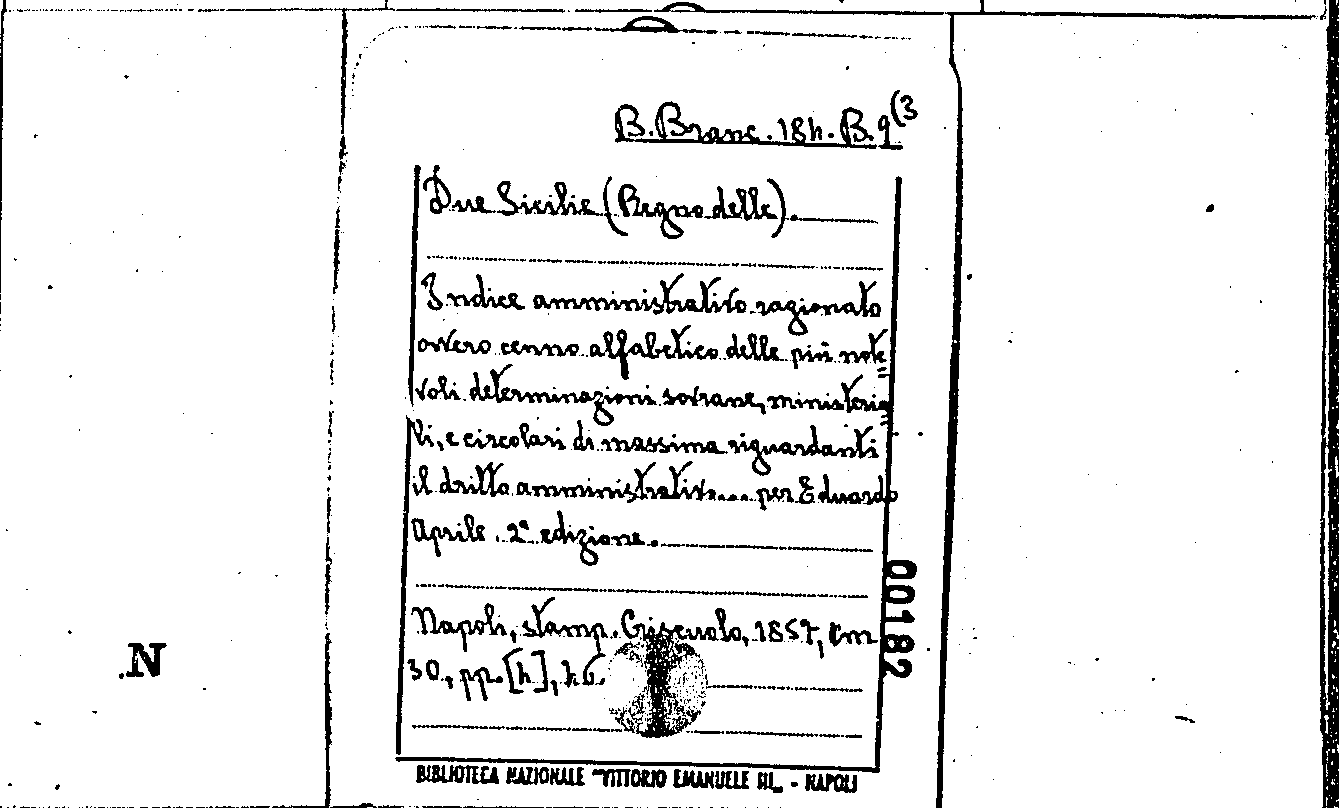 B. Branc. 184. B. 9(3
Due Sicilie (Regno delle).
Indice amministrativo ragionato
ovvero cenno alfabetico delle più note
voli determinazioni sovrane, ministeria
li, e circolari di massima riguardanti
il dritto amministrativo... per Eduardo
Aprile. 2ª edizione.
Napoli, stamp. Criscuolo, 1857, cm
30, pp. [4], 46.
00182
.N
BIBLIOTECA NAZIONALE "VITTORIO EMANUELE III„ - NAPOLI